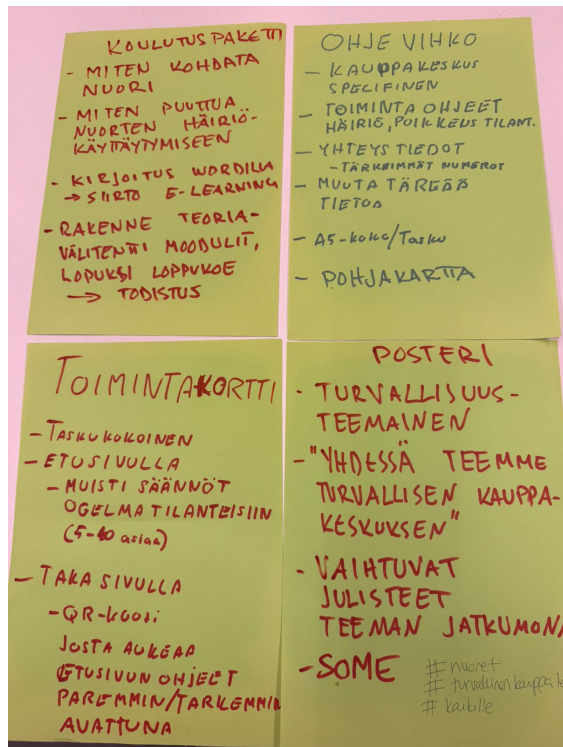 KOULUTUSPAKETTI
- MITEN KOHDATA
NUORI
- MITEN PUUTTUA
NUORTEN HÄIRIÖ-
KÄYTTÄYTYMISEEN
- KIRJOITUS WORDILLA
→ SIIRTO E-LEARNING
- RAKENNE TEORIA-
VÄLITENTTI MOODULIT,
LOPUKSI LOPPUKOE
→ TODISTUS
OHJE VIHKO
- KAUPPAKESKUS
SPECIFINEN
- TOIMINTA OHJEET
HÄIRIÖ, POIKKEUS TILANT.
- YHTEYS TIEDOT
- TÄRKEIMMÄT NUMEROT
- MUUTA TÄREÄÄ
TIETOA
- A5-KOKO/TASKU
- POHJAKARTTA
TOIMINTAKORTTI
- TASKUKOKOINEN
- ETUSIVULLA
- MUISTI SÄÄNNÖT
OGELMA TILANTEISIIN
(5-10 asiaa)
- TAKA SIVULLA
- QR-KOODI
JOSTA AUKEAA
ETUSIVUN OHJEET
PAREMMIN/TARKEMMIN
AVATTUNA
POSTERI
- TURVALLISUUS-
TEEMAINEN
- "YHDESSÄ TEEMME
TURVALLISEN KAUPPA-
KESKUKSEN"
- VAIHTUVAT
JULISTEET
TEEMAN JATKUMONA
- SOME
# nuoret
# turvallinenkauppake
# kaikille